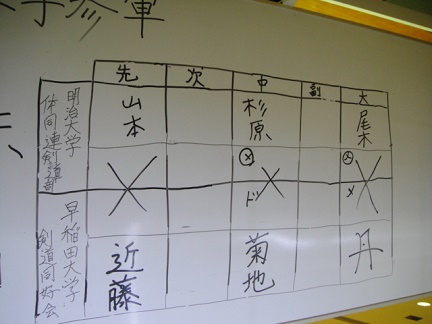 先 次 中 副 大
明治大学
体同連剣道部
山本
杉原
メ
ド
メ
メ
早稲田大学
剣道同好会
近藤
菊地
丹